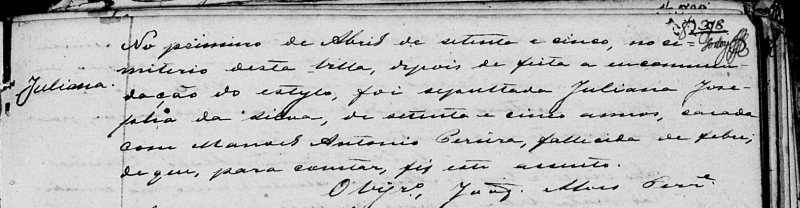 398
No primeiro de Abril de setenta e cinco, no ci-
miterio desta Villa, depois de feita a encommen-
Juliana.
dação do estylo, foi sepultada Juliana Jose-
pha da Silva, de setenta e cinco annos, casada
com Manoel Antonio Pereira, fallecida de febre;
de que, para constar, fiz este assento.
O Vigrº, Joaq. Alves Perª